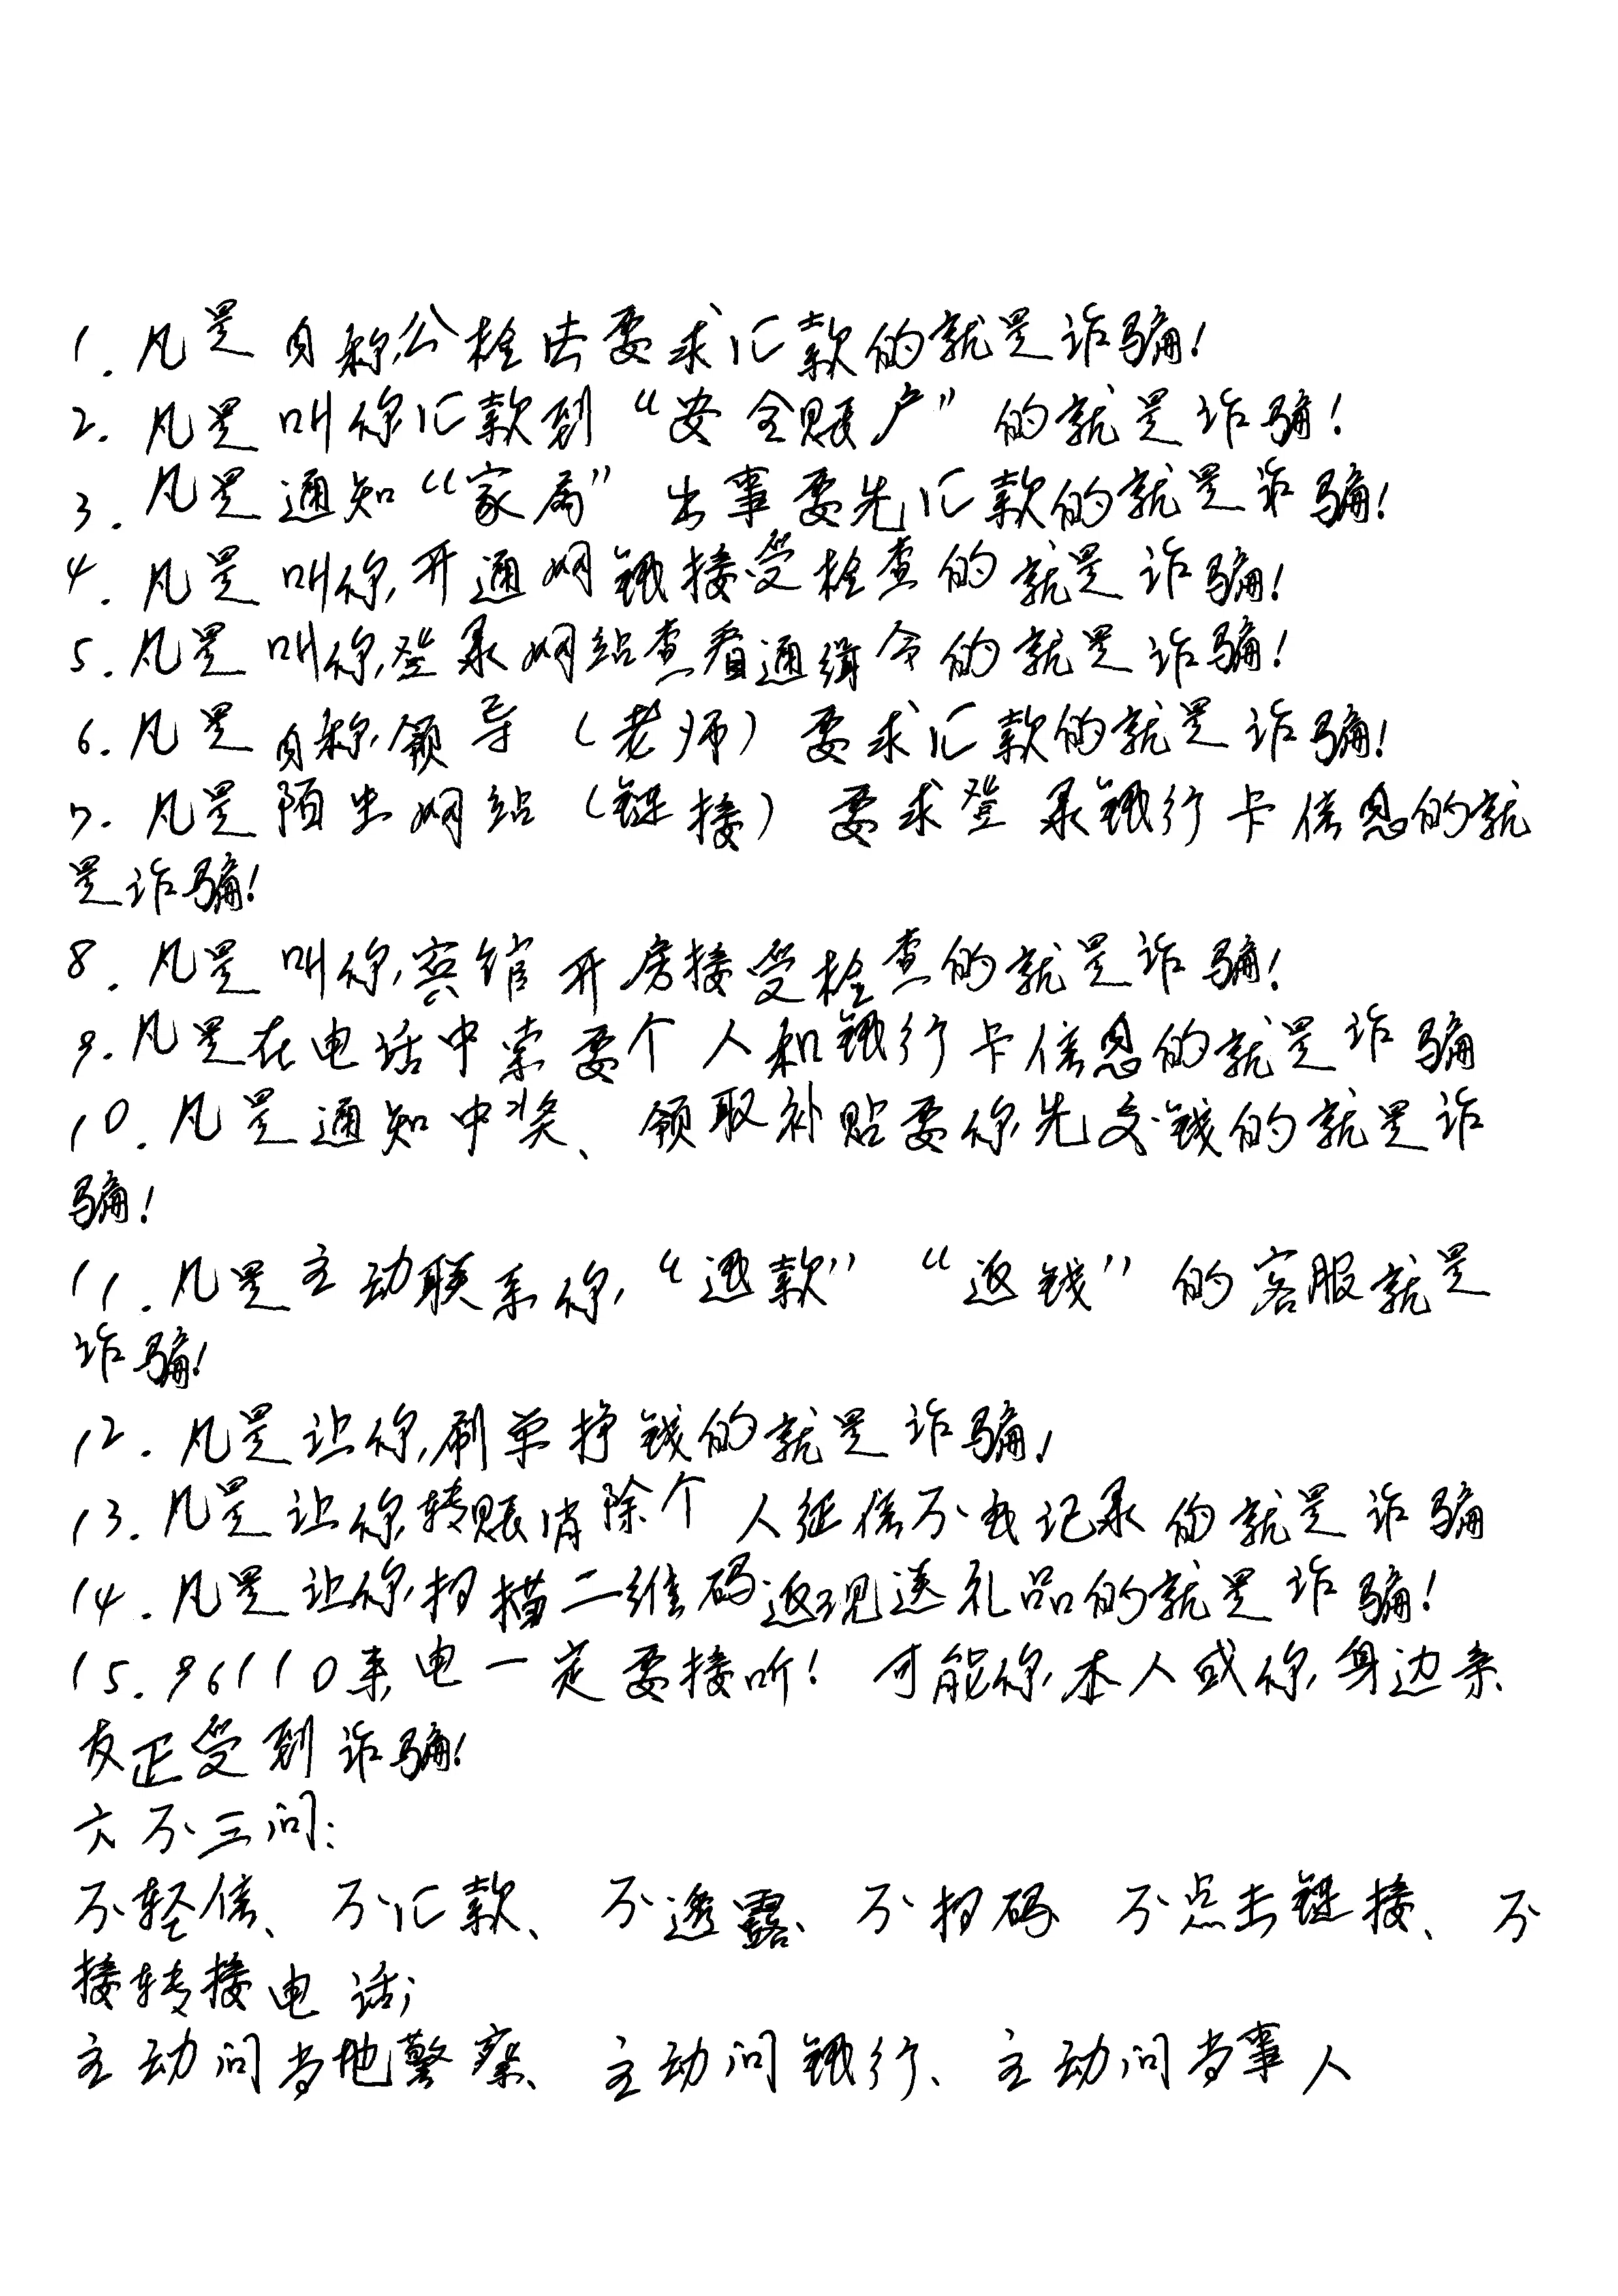 1.凡是自称公检法要求汇款的就是诈骗!
2.凡是叫你汇款到“安全账户”的就是诈骗!
3.凡是通知“家属”出事要先汇款的就是诈骗!
4.凡是叫你开通网银接受检查的就是诈骗!
5.凡是叫你登录网站查看通缉令的就是诈骗!
6.凡是自称领导(老师)要求汇款的就是诈骗!
7.凡是陌生网站(链接)要求登录银行卡信息的就
是诈骗!
8.凡是叫你宾馆开房接受检查的就是诈骗!
9.凡是在电话中索要个人和银行卡信息的就是诈骗
10.凡是通知中奖、领取补贴要你先交钱的就是诈
骗!
11.凡是主动联系你“退款”“返钱”的客服就是
诈骗!
12.凡是让你刷单挣钱的就是诈骗!
13.凡是让你转账消除个人征信不良记录的就是诈骗
14.凡是让你扫描二维码返现送礼品的就是诈骗!
15.96110来电一定要接听!可能你本人或你身边亲
友正受到诈骗!
六不三问:
不轻信、不汇款、不透露、不扫码 不点击链接、不
接转接电话;
主动问当地警察、主动问银行、主动问当事人